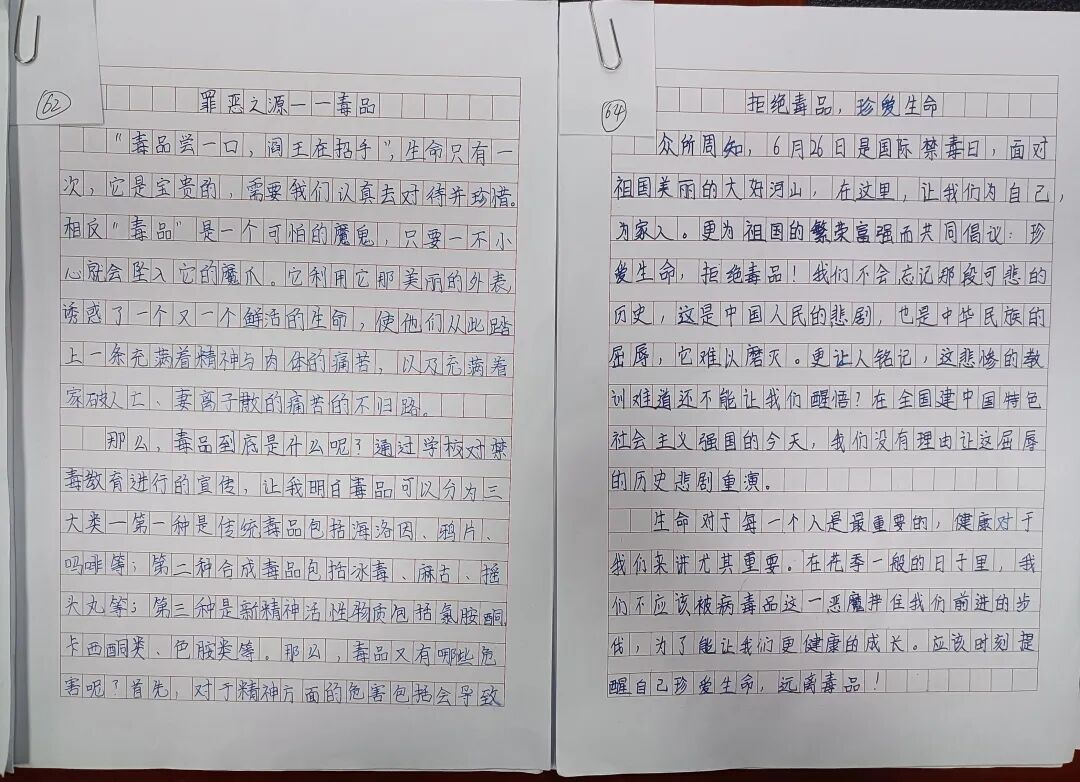 62
罪恶之源——毒品
“毒品尝一口，阎王在招手”，生命只有一
次，它是宝贵的，需要我们认真去对待并珍惜。
相反“毒品”是一个可怕的魔鬼，只要一不小
心就会坠入它的魔爪。它利用它那美丽的外表
诱惑了一个又一个鲜活的生命，使他们从此踏
上一条充满着精神与肉体的痛苦，以及充满着
家破人亡、妻离子散的痛苦的不归路。
那么，毒品到底是什么呢？通过学校对禁
毒教育进行的宣传，让我明白毒品可以分为三
大类一第一种是传统毒品包括海洛因、鸦片、
吗啡等；第二种合成毒品包括冰毒、麻古、摇
头丸等；第三种是新精神活性物质包括氯胺酮
卡西酮类、色胺类等。那么，毒品又有哪些危
害呢？首先，对于精神方面的危害包括会导致
64
拒绝毒品，珍爱生命
众所周知，6月26日是国际禁毒日，面对
祖国美丽的大好河山，在这里，让我们为自己，
为家人。更为祖国的繁荣富强而共同倡议：珍
爱生命，拒绝毒品！我们不会忘记那段可悲的
历史，这是中国人民的悲剧，也是中华民族的
屈辱，它难以磨灭。更让人铭记，这悲惨的教
训难道还不能让我们醒悟？在全国建中国特色
社会主义强国的今天，我们没有理由让这屈辱
的历史悲剧重演。
生命对于每一个人是最重要的，健康对于
我们来讲尤其重要。在花季一般的日子里，我
们不应该被病毒品这一恶魔拌住我们前进的步
伐，为了能让我们更健康的成长。应该时刻提
醒自己珍爱生命，远离毒品！